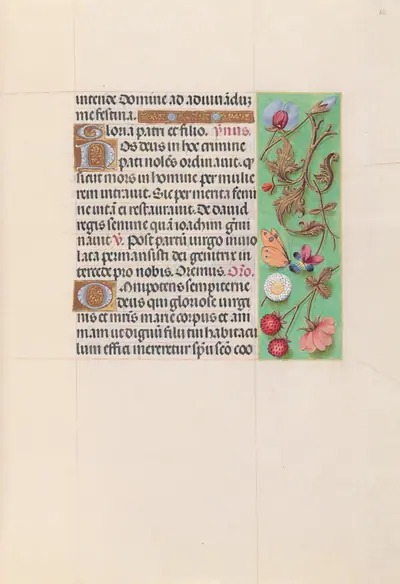 intende Domine ad adiuuādūz
me festina.
Gloria patri et filio. ymus.
Nos deus in hoc crimine
pati nolēs ordinauit. q
sicut mors in hoc mine per mulie
rem intrauit. Sic per merita femi
ne uitā ei restauraiut. De dauid
regis semine quā ioachim gēni
nauit V. Post partū uirgo inuio
lata permansisti dei genitrix in
tercede pro nobis. Oremus. Orō.
Omnipotens sempiterne
deus qui gloriose uirgi
nis et mr̄is marie corpus et ani
mam ut dignū filii tui habitacu
lum effici mereretur spū scō coo